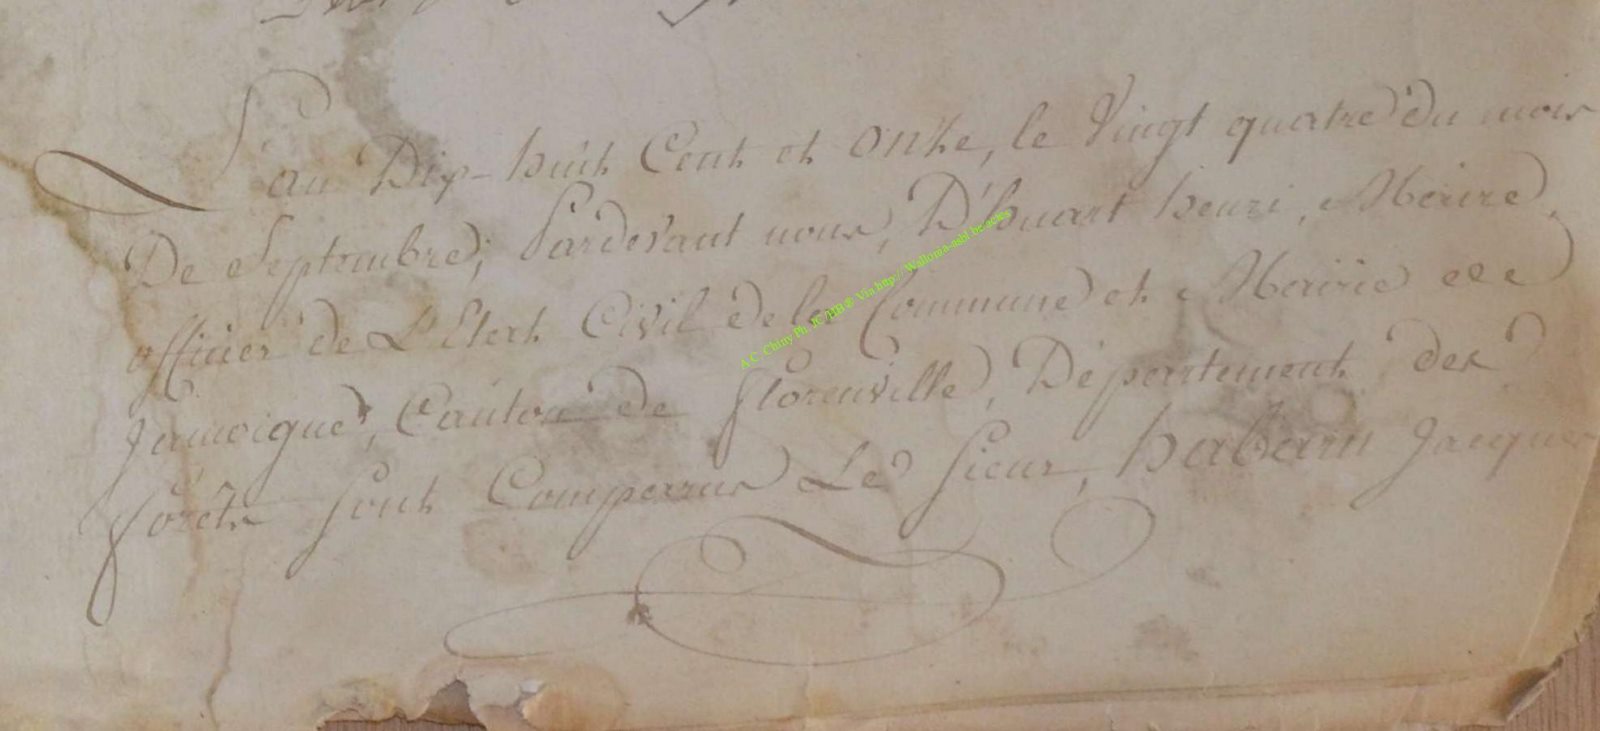 L'an Dix-huit Cent et onze, le Vingt quatre du mois
De Septembre, Pardevant nous, D'huart henri, Maire,
officier de L'Etat Civil de la Commune et Mairie de
Jamoigne, Canton de florenville, Département des
forêts sont Comparus Le Sieur, habaru Jacques
A.C. Chiny Ph. JC /HB ® Via http:// Wallonia-asbl be actes